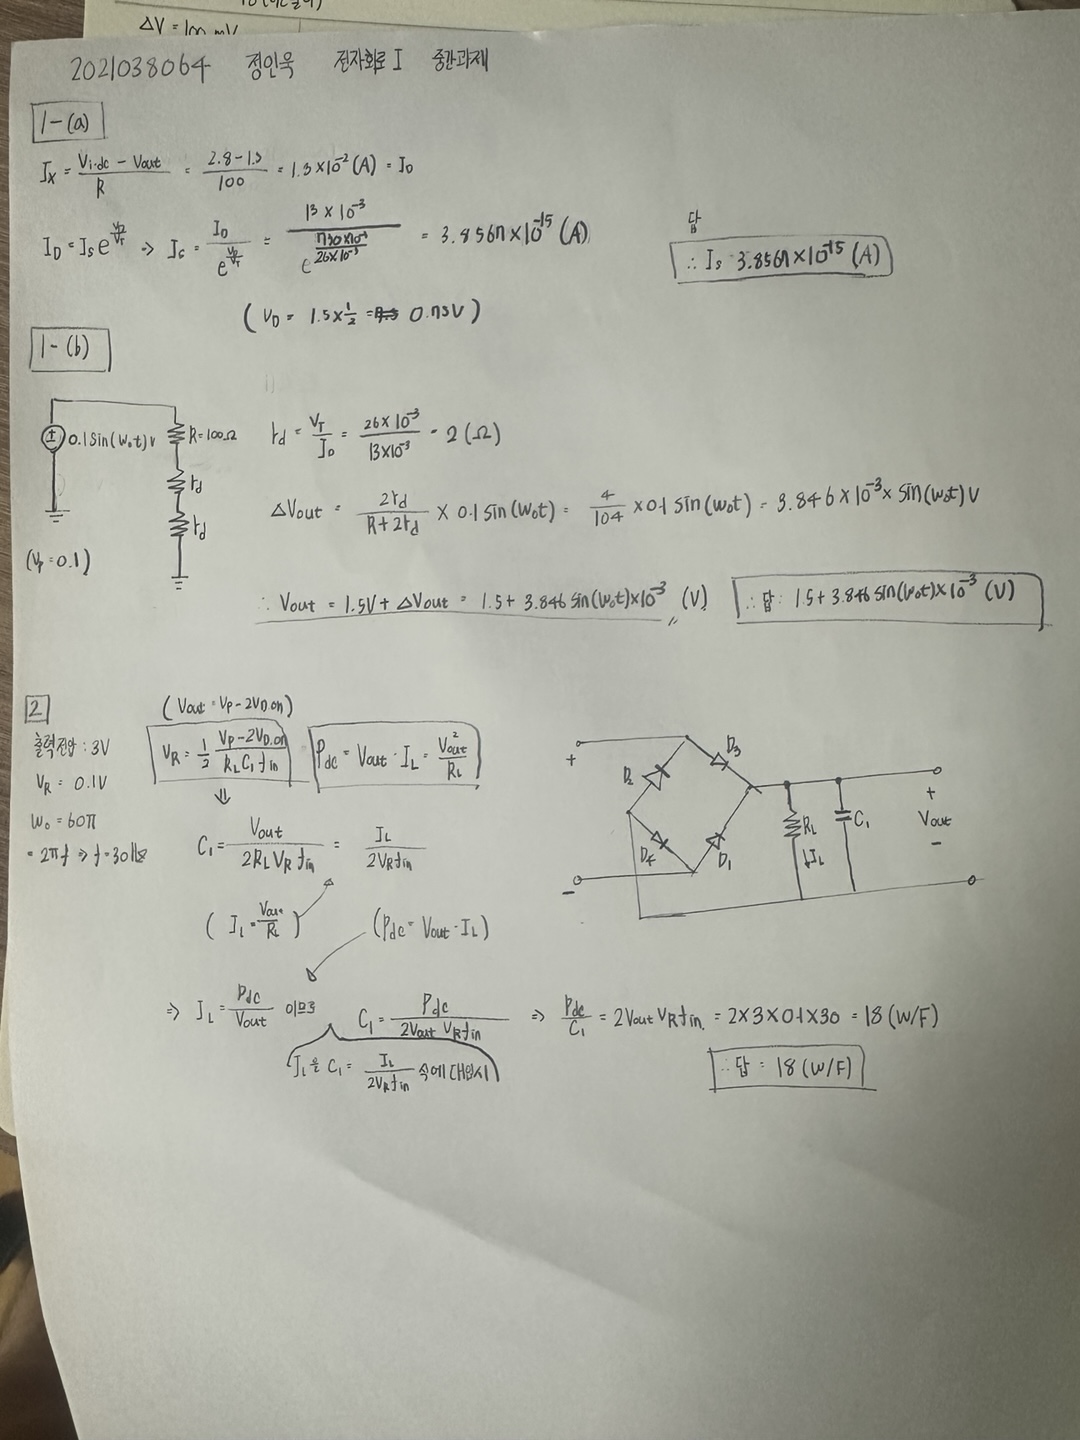 ΔV = 100 mV
2021038064 정인욱 전자회로 I 중간과제
1-(a)
Ix = (Vi.dc - Vout)/R = (2.8-1.5)/100 = 1.3×10^-2 (A) = I_D
I_D = I_s e^(V_D/V_T) → I_s = I_D/e^(V_D/V_T) = (13×10^-3)/e^((750×10^-3)/(26×10^-3)) = 3.8567×10^-15 (A)
답
∴ I_s 3.8567×10^-15 (A)
(V_D = 1.5×1/2 = 0.75V)
1-(b)
0.1 sin(w₀t) v
R=100Ω
r_d
r_d
(Vp=0.1)
r_d = V_T/I_D = (26×10^-3)/(13×10^-3) = 2 (Ω)
ΔVout = 2r_d/(R+2r_d) × 0.1 sin(w₀t) = 4/104 × 0.1 sin(w₀t) = 3.846×10^-3 × sin(w₀t) V
∴ Vout = 1.5V + ΔVout = 1.5 + 3.846 sin(w₀t)×10^-3 (V)
∴ 답: 1.5 + 3.846 sin(w₀t)×10^-3 (V)
2
출력전압 : 3V
V_R = 0.1V
w₀ = 60π
= 2πf ⇒ f=30Hz
(Vout = Vp - 2V_D.on)
V_R = 1/2 (Vp-2V_D.on)/(R_L C₁ fin)
Pdc = Vout · I_L = Vout²/R_L
⇓
C₁ = Vout/(2R_L V_R fin) = I_L/(2V_R fin)
(I_L = Vout/R_L)
(Pdc = Vout · I_L)
+
-
D₂
D₃
D₄
D₁
R_L
↓I_L
C₁
+
Vout
-
⇒ I_L = Pdc/Vout 이므로 C₁ = Pdc/(2Vout V_R fin) ⇒ Pdc/C₁ = 2Vout V_R fin. = 2×3×0.1×30 = 18 (W/F)
I_L을 C₁ = I_L/(2V_R fin) 속에 대입시
∴ 답 = 18 (W/F)